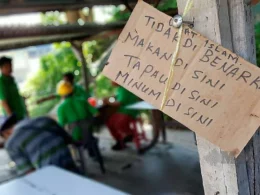 UMAT ISLAM
TIDAK DI BENARKAN
MAKAN DI SINI
TAPAU DI SINI
MINUM DI SINI